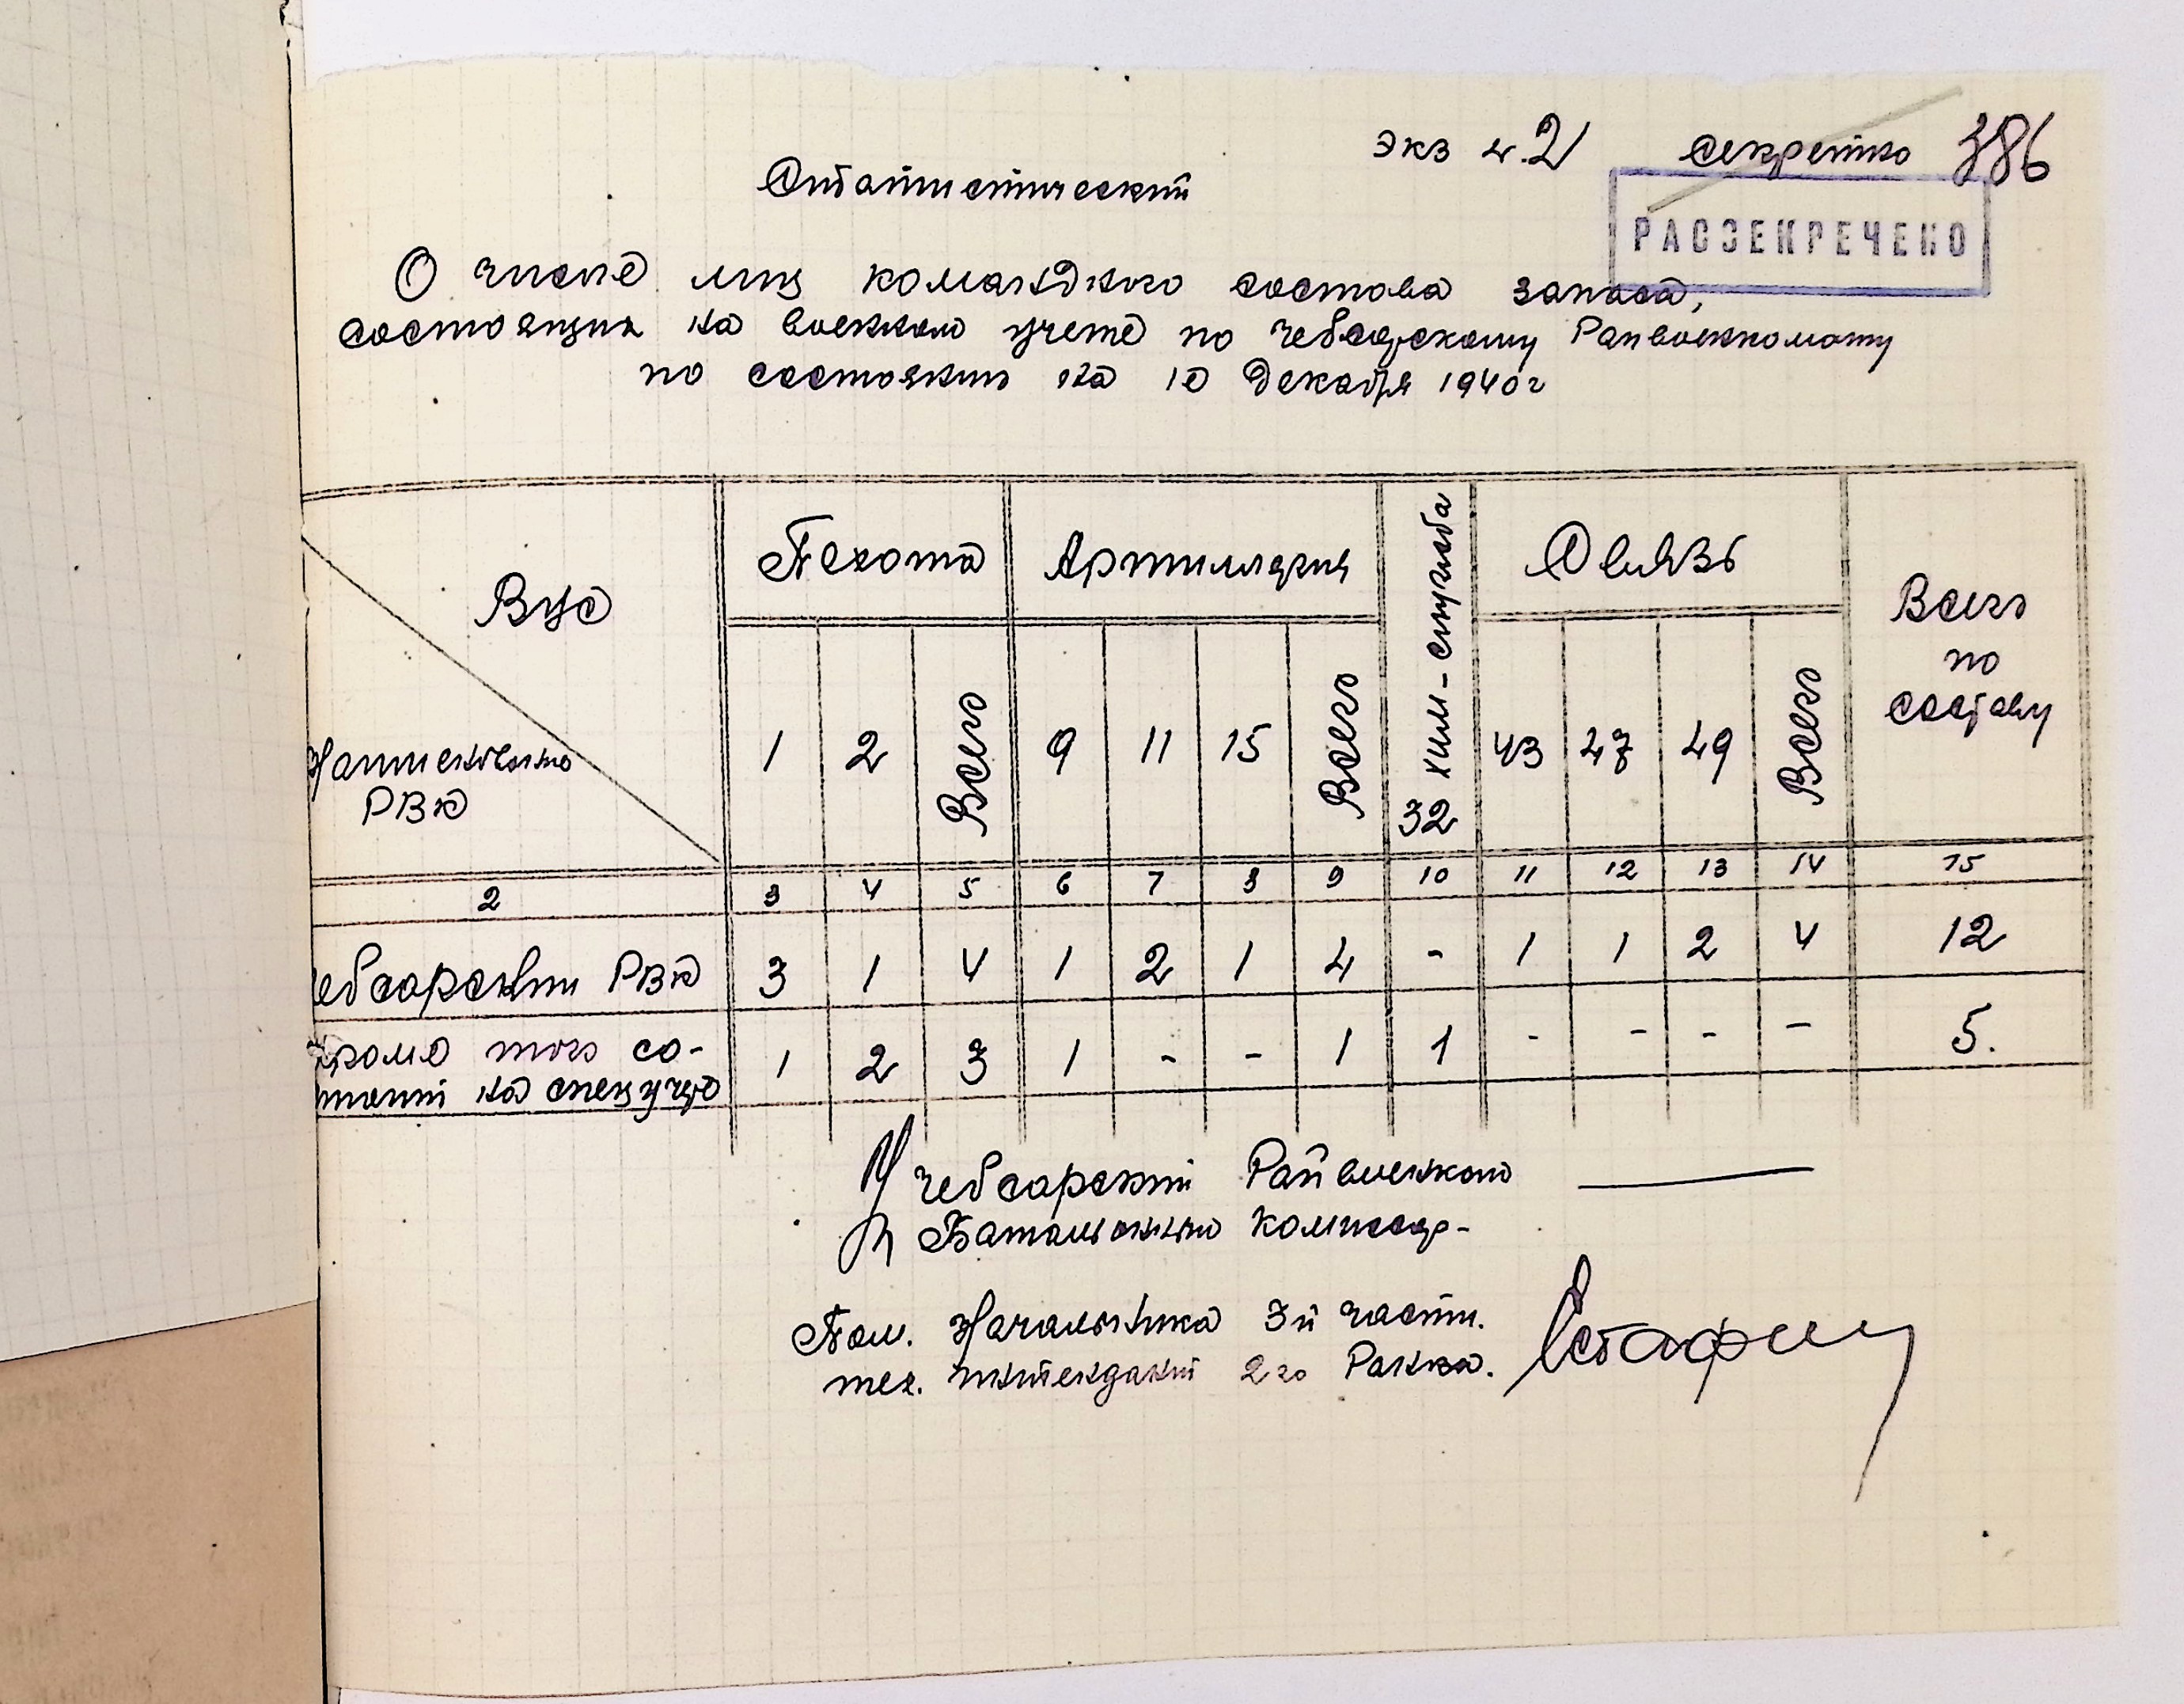 экз N.2 секретно 386
РАССЕКРЕЧЕНО
Статистический
О числе лиц командного состава запаса,
состоящих на военном учете по Чебсарскому Райвоенкомату
по состоянию на 10 декабря 1940 г
Вус Пехота Артиллерия 32 хим-служба Связь Всего по составу
Наименование РВК 1 2 Всего 9 11 15 Всего 43 47 49 Всего
2 3 4 5 6 7 8 9 10 11 12 13 14 15
ебсарский РВК 3 1 4 1 2 1 4 - 1 1 2 4 12
Кроме того со- 1 2 3 1 - - 1 1 - - - - 5.
на спец учете
Чебсарский Райвоенком
Батальонный комиссар-
Пом. Начальника 3й части.
тех. интендант 2го Ранга.